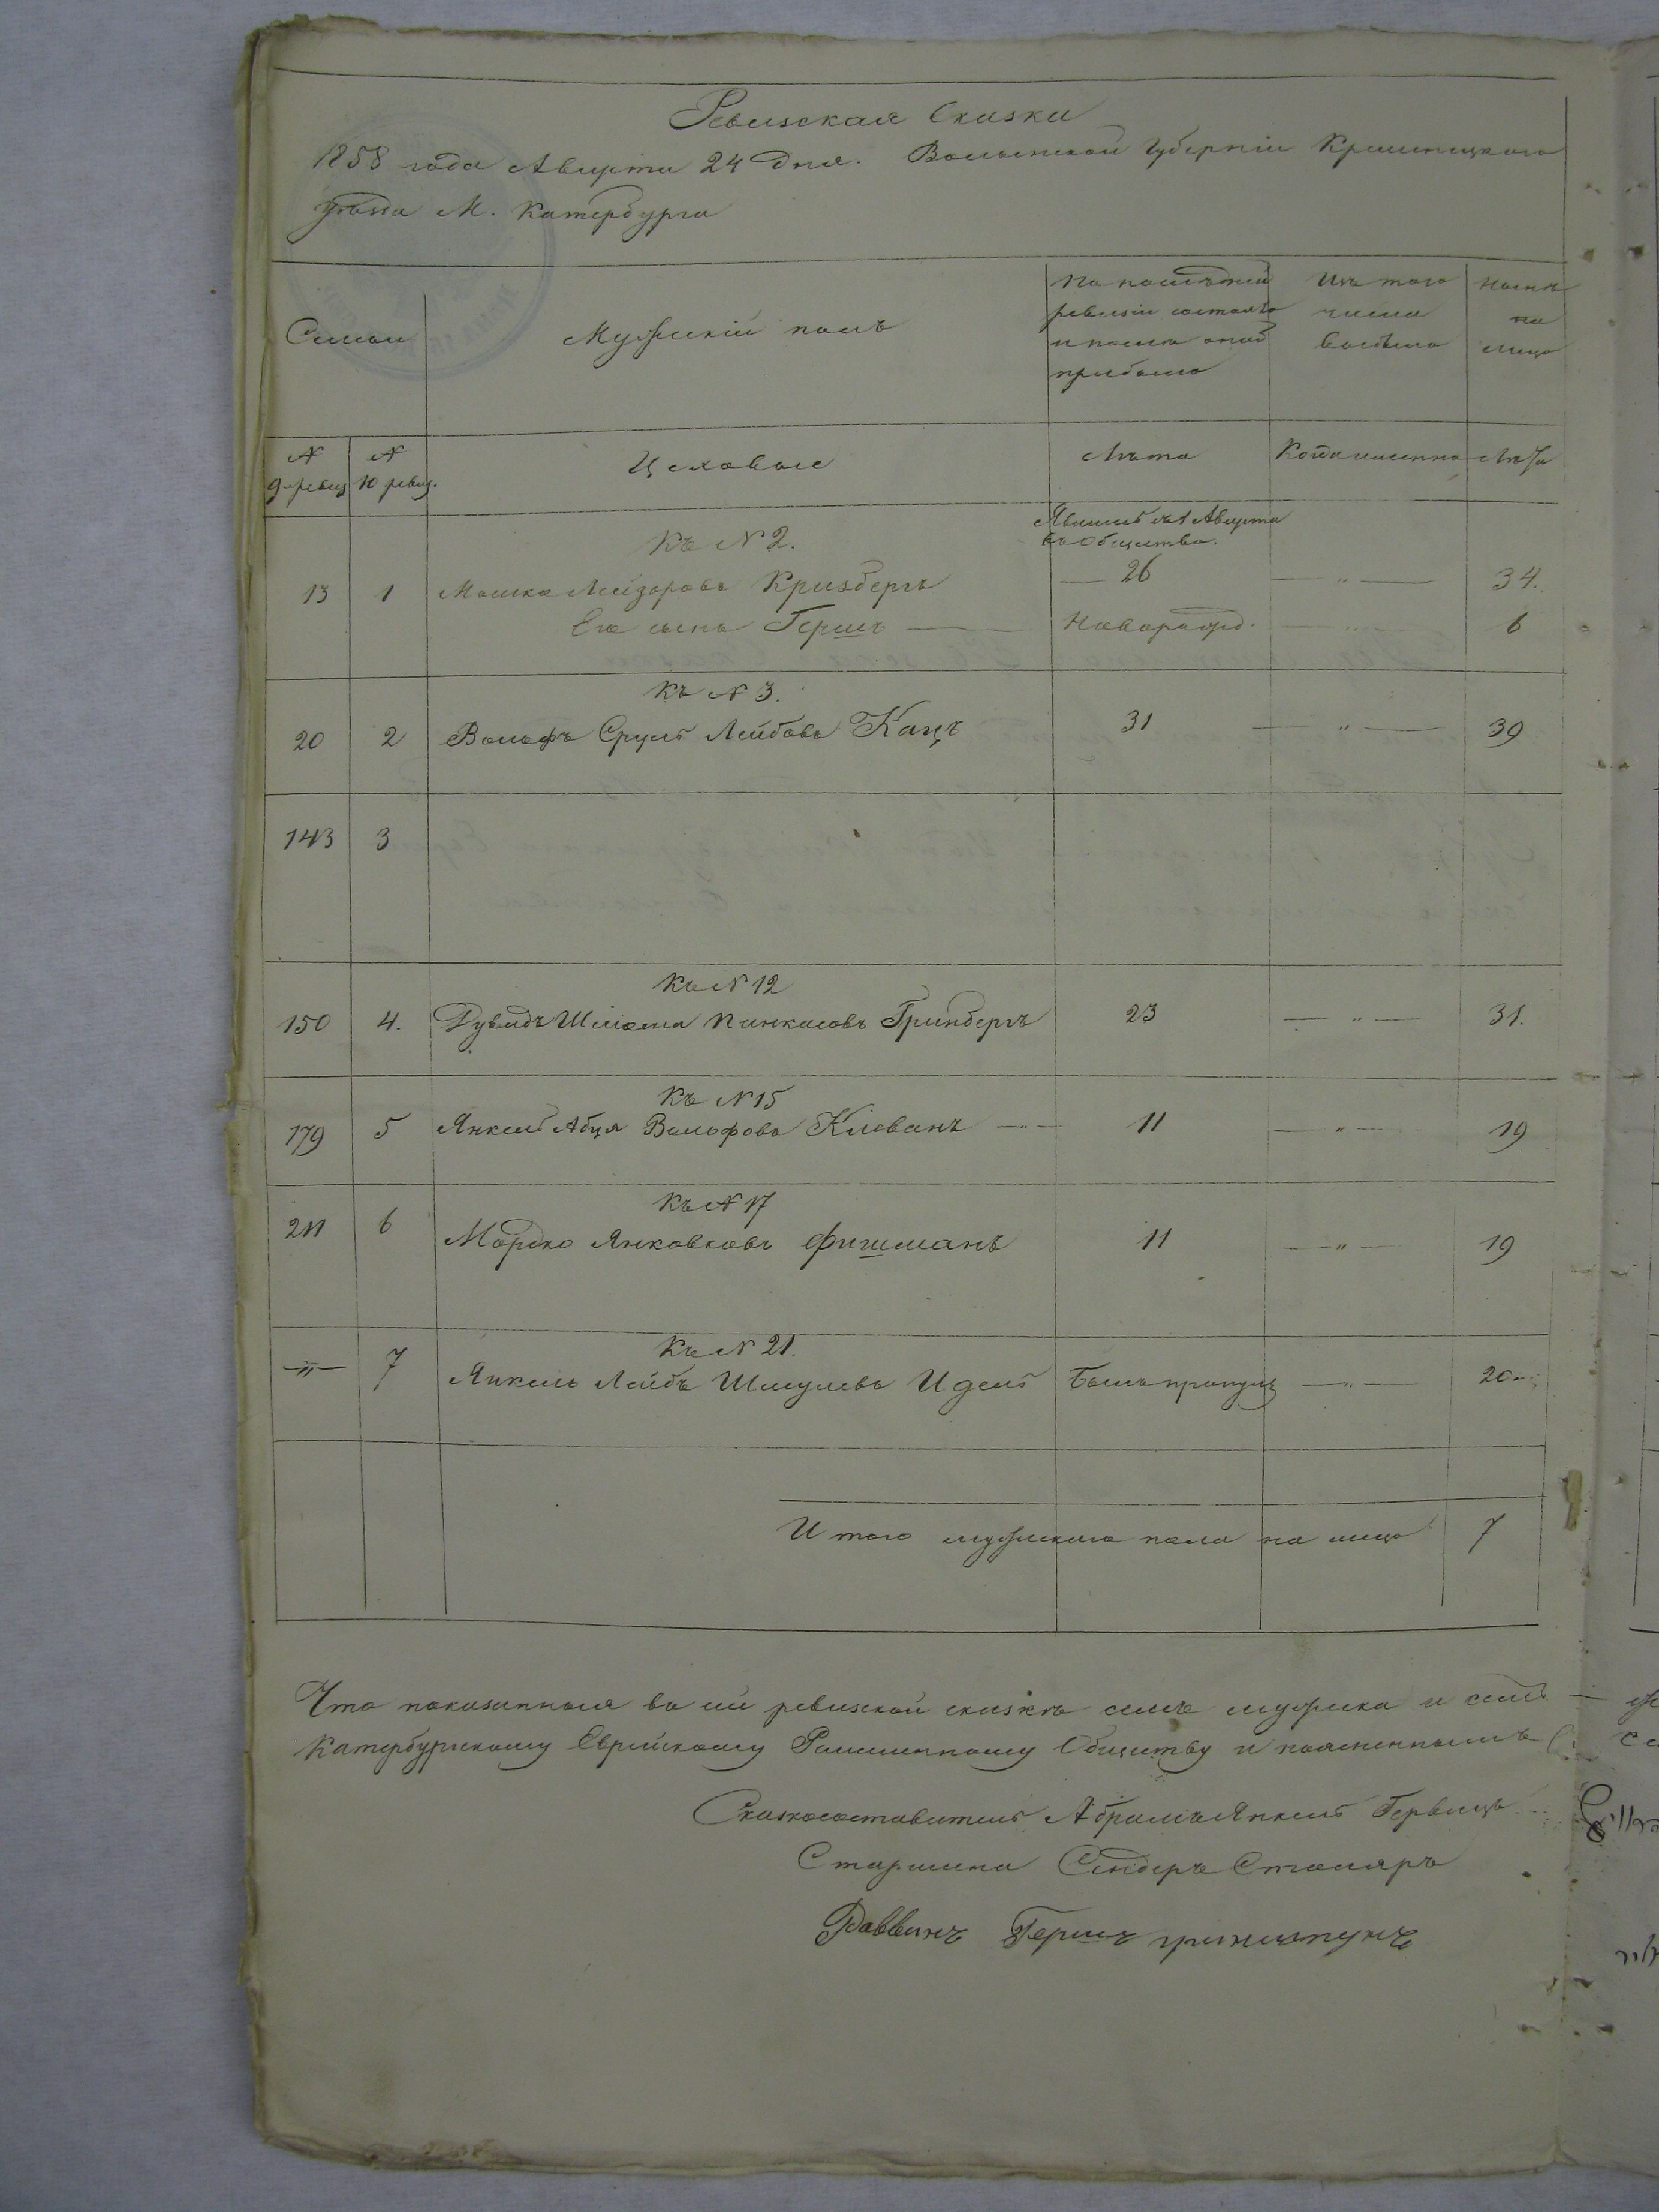 Ревизская Сказка
1858 года Августа 24 дня. Волынской Губерніи Кременецкаго
уѣзда М. Катербурга
Семьи
Мужескій полъ
По послѣдней ревизіи состояло и после оной прибыло
Изъ того числа выбыло
Нынѣ на лицо
№ 9 ревиз
№ 10 ревиз.
Цеховые
Лѣта
Когда именно
Лѣта
Къ № 2.
Явился съ 1 Августа въ общество.
13 1 Мошко Лейзоровъ Кризберъ — 26 — " — 34.
Его сынъ Гершъ — Новорожд. — " — 6
Къ № 3.
20 2 Вольфъ Сруль Лейбовъ Кацъ 31 — " — 39
143 3
Къ № 12
150 4. Дувидъ Шлиома Пинкасовъ Гринбергъ 23 — " — 31.
Къ № 15
179 5 Янкель Абця Вольфовъ Клеванъ — 11 — " — 19
Къ № 17
211 6 Мордко Янковковъ Фишманъ 11 — " — 19
Къ № 21.
— " — 7 Янкель Лейбъ Шмулевъ Идель Былъ пропущ — " — 20
Итого мужескаго пола на лицо 7
Что показанныя во сей ревизской сказкѣ семь мужска и семь —
Катербурскому Еврейскому Ремесленному Обществу и поясненнымъ
Сказкосоставитель Абрамъ Янкель Гервицъ
Старшина Сендеръ Столяръ
Раввинъ Гершъ гриншпунъ